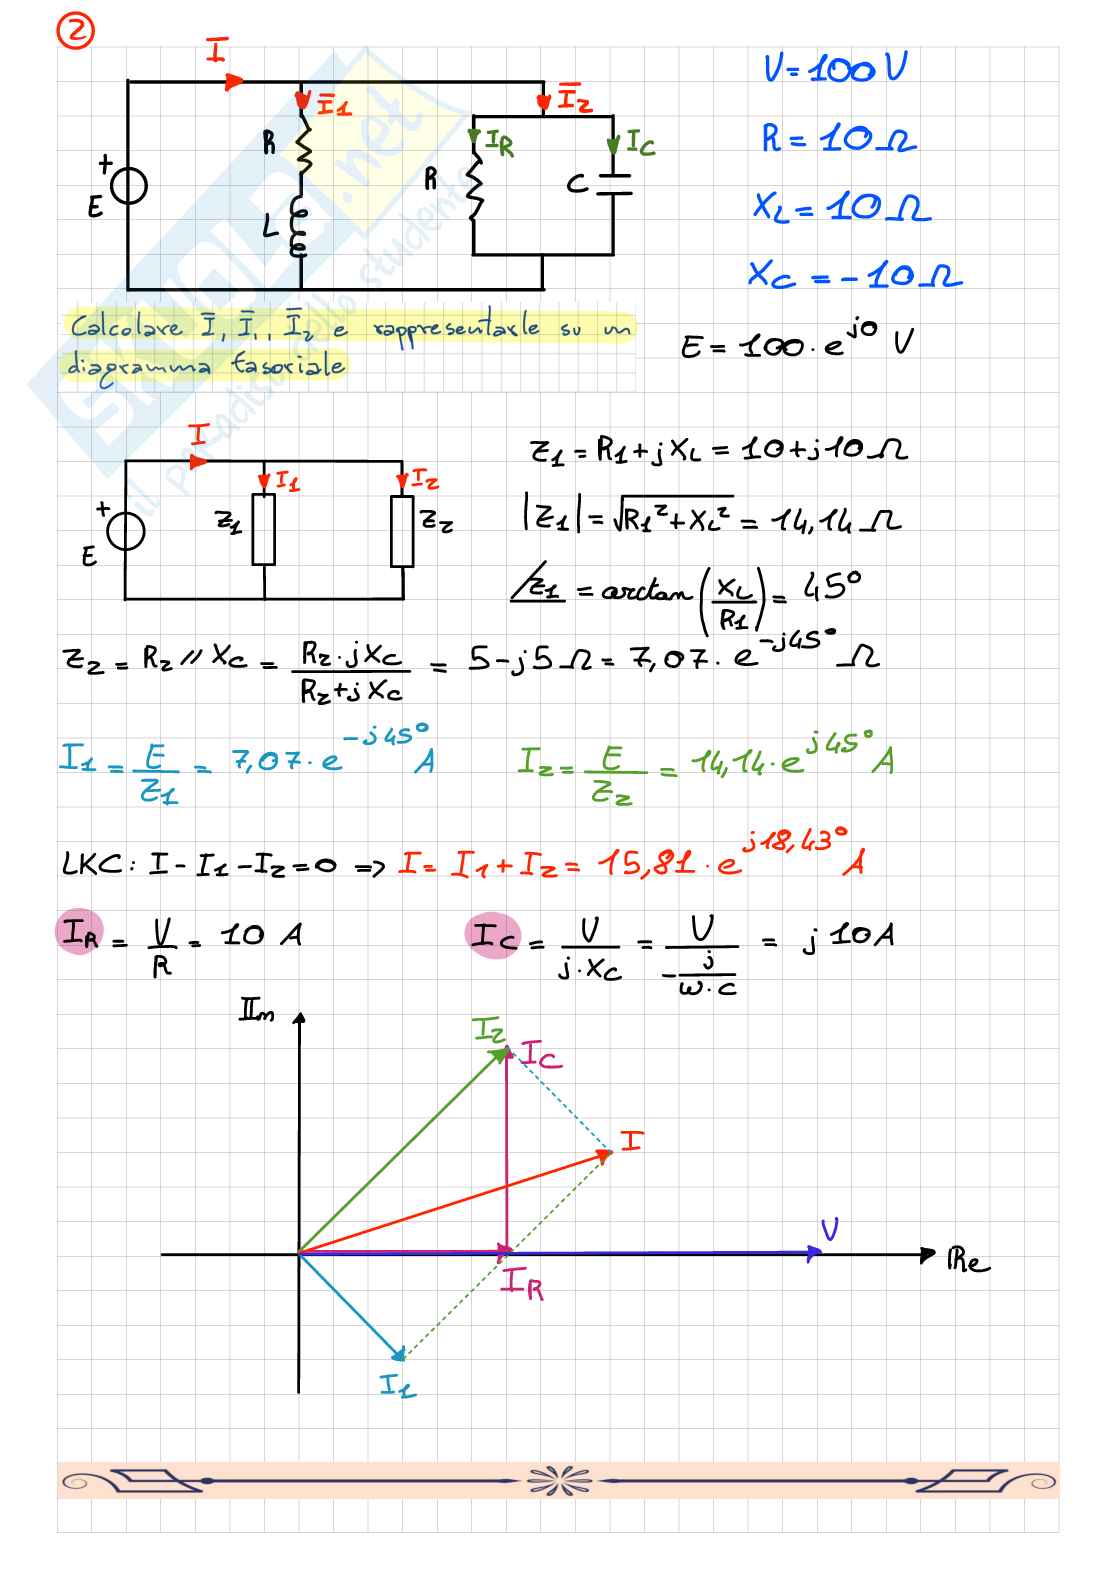 2
I
I̅1
I̅2
R
L
E
+
R
IR
IC
C
V = 100 V
R = 10 Ω
XL = 10 Ω
XC = -10 Ω
Calcolare I̅, I̅1, I̅2 e rappresentarle su un
diagramma fasoriale
E = 100 · e^j0 V
I
I1
I2
+
E
Z1
Z2
Z1 = R1 + j XL = 10 + j10 Ω
|Z1| = √(R1² + XL²) = 14,14 Ω
∠Z1 = arctan (XL / R1) = 45°
Z2 = R2 // XC = (R2 · j XC) / (R2 + j XC) = 5 - j5 Ω = 7,07 · e^-j45° Ω
I1 = E / Z1 = 7,07 · e^-j45° A
I2 = E / Z2 = 14,14 · e^j45° A
LKC: I - I1 - I2 = 0 => I = I1 + I2 = 15,81 · e^j18,43° A
IR = V / R = 10 A
IC = V / (j · XC) = V / (- j / (ω · C)) = j 10 A
Im
I2
IC
I
V
Re
IR
I1
SKUOLA.net
il paradiso dello studente